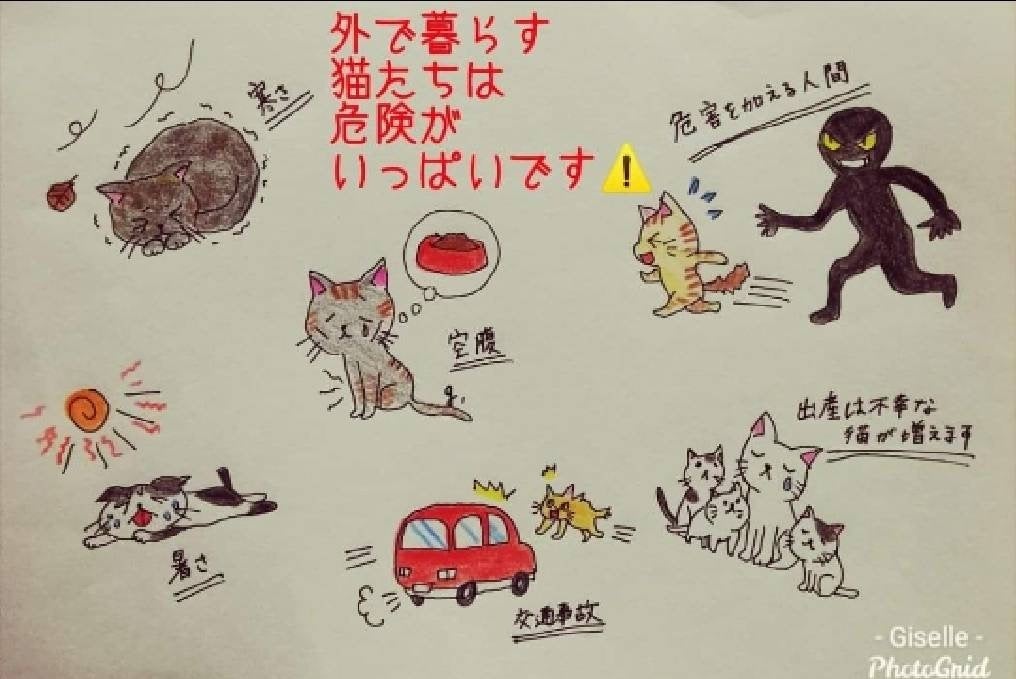 外で暮らす
猫たちは
危険が
いっぱいです⚠
寒さ
危害を加える人間
空腹
出産は不幸な
猫が増えます
暑さ
交通事故
- Giselle -
PhotoGrid